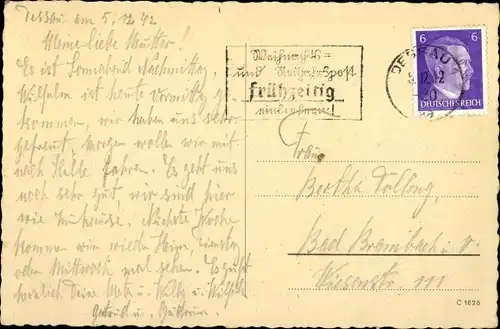 Dessau am 5.12.42
Meine liebe Mutter!
Es ist Sonnabend Nachmittag,
Wilhelm ist heute Vormittag ge-
kommen, wir haben uns sehr
gefreut, morgen wollen wir mit
nach Halle fahren. Es geht uns
noch sehr gut, wir sind hier
wie zuhause. Nächste Woche
kommen wir wieder Heim, Dienstag
oder Mittwoch mal sehen. Es grüßt
herzlich Deine u. u. Wilhelm
Gertrud u.
Weihnachts=
und Neujahrspost
frühzeitig
einliefern!
DESSAU
5.12.42
6
6
DEUTSCHES REICH
Bertha
Bad Brambach i. V.
Wiesenstr. 111
C 1626